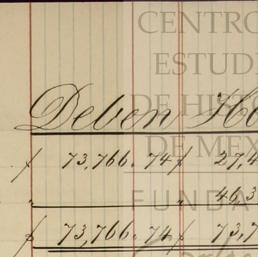 CENTRO
ESTUDI
DE HISTO
DE MEX
FUNDA
Deben Ha
$ 73,766.74 $ 27,4
" " 46,3
$ 73,766.74 $ 73,7